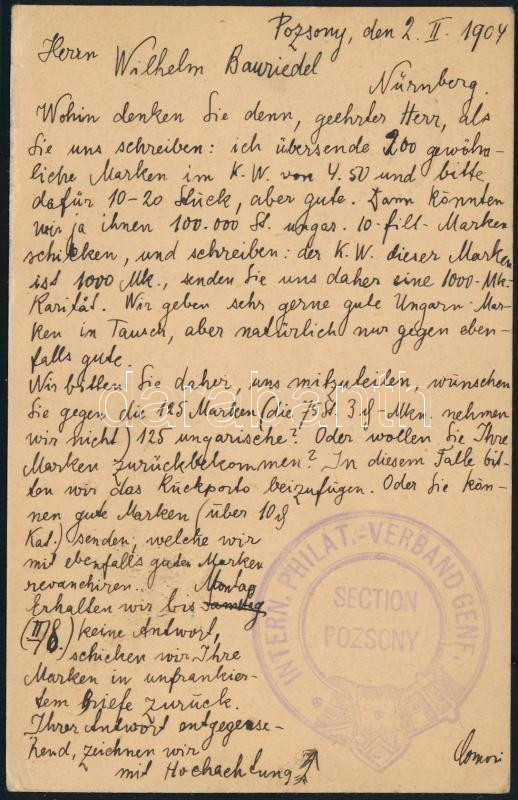 Pozsony, den 2. II. 1904
Herrn Wilhelm Bauriedel
Nürnberg.
Wohin denken Sie denn, geehrter Herr, als
Sie uns schreiben: ich übersende 200 gewöhn-
liche Marken im K. W. von 4.50 und bitte
dafür 10-20 Stück, aber gute. Dann könnten
wir ja ihnen 100.000 St. ungar. 10-fill- Marken
schicken, und schreiben: der K. W. dieser Marken
ist 1000 Mk., senden Sie uns daher eine 1000-Mk-
Rarität. Wir geben sehr gerne gute Ungarn-Mar-
ken in Tausch, aber natürlich nur gegen eben-
falls gute.
Wir bitten Sie daher, uns mitzuteilen, wünschen
Sie gegen die 125 Marken (die 75 St. 3 ₰-Mkn. nehmen
wir nicht) 125 ungarische? Oder wollen Sie Ihre
Marken zurückbekommen? In diesem Falle bit-
ten wir das Rückporto beizufügen. Oder Sie kön-
nen gute Marken (über 10 ₰
Kat.) senden, welche wir
mit ebenfalls guten Marken
revanchiren. Montag
Erhalten wir bis Samstag
(II/8.) keine Antwort,
schicken wir Ihre
Marken in unfrankier-
tem Briefe zurück.
Ihrer Antwort entgegense-
hend, zeichnen wir
mit Hochachtung
INTERN. PHILAT.-VERBAND GENF.
SECTION
POZSONY
darabanth